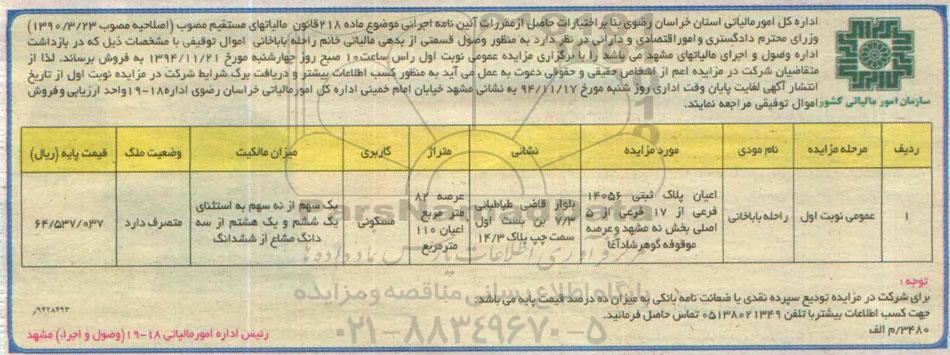 اداره کل امورمالیاتی استان خراسان رضوی بنا بر اختیارات حاصل از مقررات آئین نامه اجرائی موضوع ماده ۲۱۸ قانون مالیاتهای مستقیم مصوب (اصلاحیه مصوب ۱۳۹۰/۳/۲۳)
وزرای محترم دادگستری و امور اقتصادی و دارائی در نظر دارد به منظور وصول قسمتی از بدهی مالیاتی خانم راحله باباخانی اموال توقیفی با مشخصات ذیل که در بازداشت
اداره وصول و اجرای مالیاتهای مشهد می باشد را با برگزاری مزایده عمومی نوبت اول راس ساعت ۱۰ صبح روز چهارشنبه مورخ ۱۳۹۴/۱۱/۲۱ به فروش برساند. لذا از
متقاضیان شرکت در مزایده اعم از اشخاص حقیقی و حقوقی دعوت به عمل می آید به منظور کسب اطلاعات بیشتر و دریافت برگ شرایط شرکت در مزایده نوبت اول از تاریخ
انتشار آگهی لغایت پایان وقت اداری روز شنبه مورخ ۹۴/۱۱/۱۷ به نشانی مشهد خیابان امام خمینی اداره کل امورمالیاتی خراسان رضوی اداره ۱۸-۱۹ واحد ارزیابی و فروش
اموال توقیفی مراجعه نمایند.
سازمان امور مالیاتی کشور
ردیف مرحله مزایده نام مودی مورد مزایده نشانی متراژ کاربری میزان مالکیت وضعیت ملک قیمت پایه (ریال)
۱ عمومی نوبت اول راحله باباخانی اعیان پلاک ثبتی ۱۴۰۵۶ فرعی از ۱۷ فرعی از اصلی بخش نه مشهد و عرصه موقوفه گوهرشادآغا بلوار قاضی طباطبائی ۷/۳ بن بست اول سمت چپ پلاک ۱۴/۳ عرصه ۸۲ متر مربع اعیان ۱۱۰ مترمربع مسکونی یک سهم از نه سهم به استثنای یک ششم و یک هشتم از سه دانگ مشاع از ششدانگ متصرف دارد ۶۴/۵۳۷/۰۳۷
توجه:
برای شرکت در مزایده تودیع سپرده نقدی یا ضمانت نامه بانکی به میزان ده درصد قیمت پایه می باشد.
جهت کسب اطلاعات بیشتر با تلفن ۰۵۱۳۸۰۲۱۳۴۹ تماس حاصل فرمائید.
۳۴۸۰/م الف
۹۴۲۸۴۹۳/ر
رئیس اداره امورمالیاتی ۱۸-۱۹ (وصول و اجراء) مشهد
ParsNamadData
مرکز فرآوری اطلاعات پارس نماد داده ها
پایگاه اطلاع رسانی مناقصه و مزایده
۰۲۱-۸۸۳۴۹۶۷۰-۵